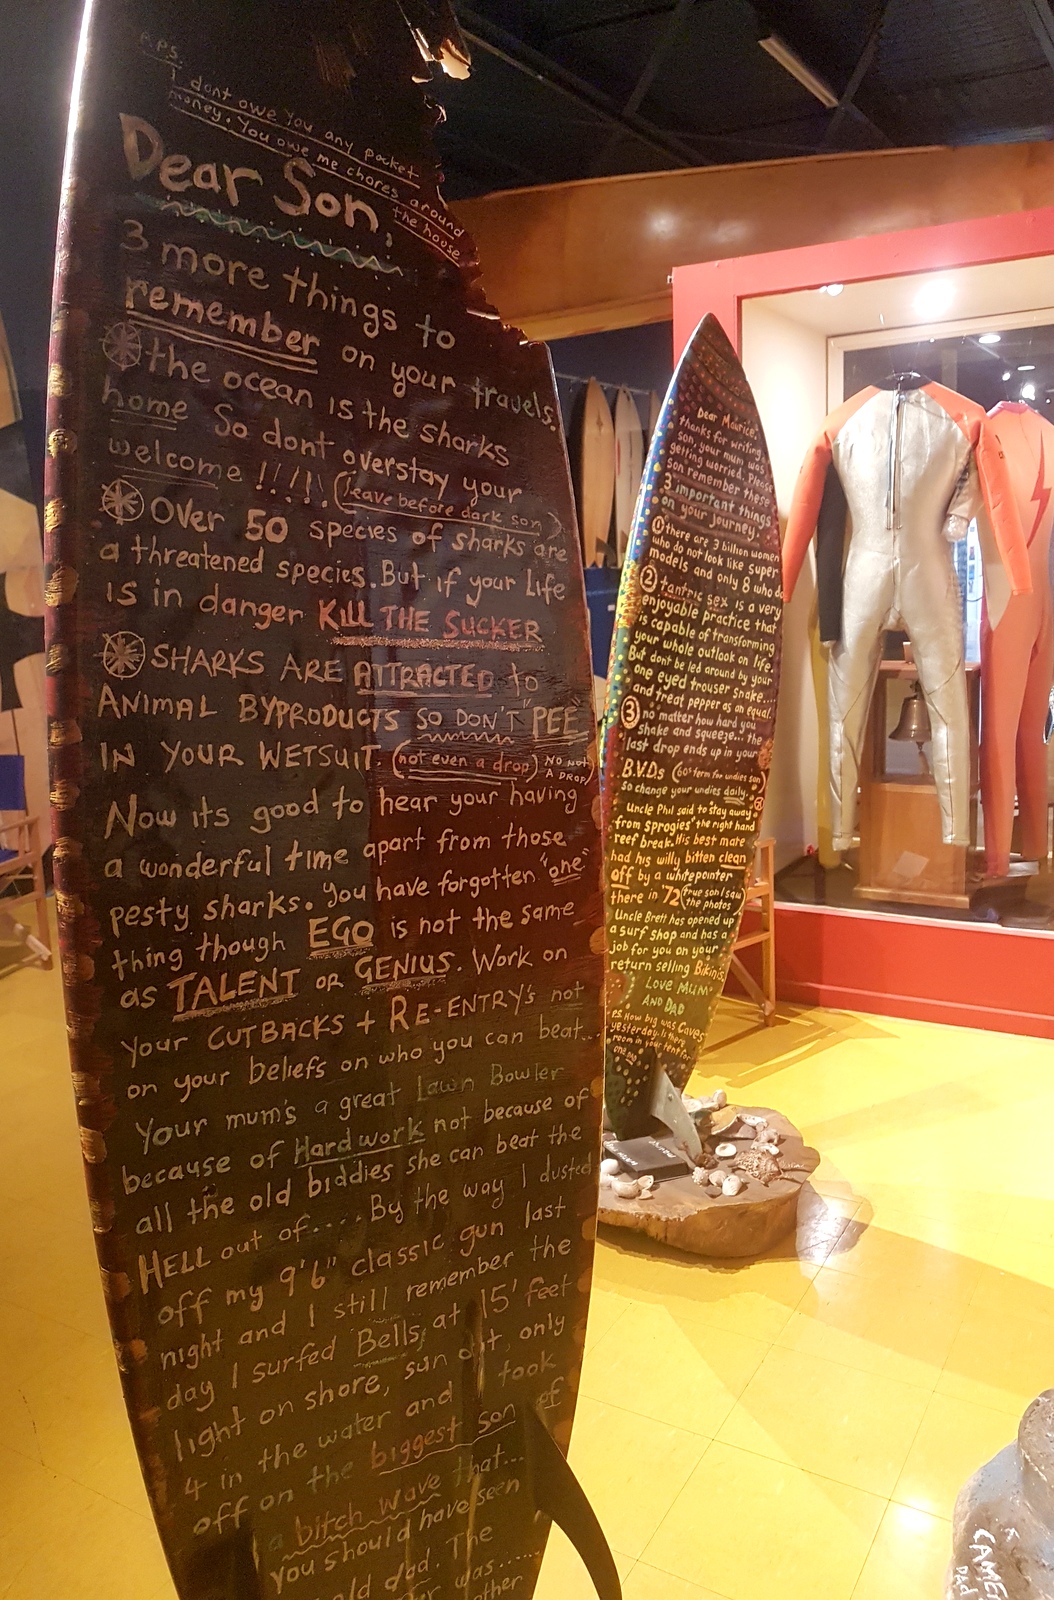 P.P.S.
I dont owe you any pocket
money. You owe me chores around
the house
Dear Son,
3 more things to
remember on your travels.
the ocean is the sharks
home So dont overstay your
welcome !!!!! (leave before dark son)
Over 50 species of sharks are
a threatened species. But if your Life
is in danger KILL THE SUCKER
SHARKS ARE ATTRACTED to
ANIMAL BYPRODUCTS SO DON'T "PEE"
IN YOUR WETSUIT. (not even a drop) NO NOT
A DROP)
Now its good to hear your having
a wonderful time apart from those
pesty sharks. You have forgotten "one"
thing though EGO is not the same
as TALENT OR GENIUS. Work on
your CUTBACKS + RE-ENTRY's not
on your beliefs on who you can beat...
Your mum's a great Lawn Bowler
because of Hardwork not because of
all the old biddies she can beat the
HELL out of.... By the way I dusted
off my 9'6" classic gun last
night and I still remember the
day I surfed Bells, at 15' feet
light on shore, sun out, only
4 in the water and I took
off on the biggest son of
a bitch wave that...
you should have seen
old dad. The
was......
other
Dear Maurice,
thanks for writing
son, your mum was
getting worried. Please
son remember these
3 important things
on your journey.
① there are 3 billion women
who do not look like super
models and only 8 who do
② tantric sex is a very
enjoyable practice that
is capable of transforming
your whole outlook on life.
But dont be led around by your
one eyed trouser snake...
and treat pepper as an equal.
③ no matter how hard you
shake and squeeze... the
last drop ends up in your
B.V.Ds (60s term for undies son)
so change your undies daily.
Uncle Phil said to stay away
from sprogies' the right hand
reef break. His best mate
had his willy bitten clean
off by a whitepointer
there in '72 (true son I saw
the photos)
Uncle Brett has opened up
a surf shop and has a
job for you on your
return selling Bikinis.
LOVE MUM
AND DAD
P.S. How big was Caves
yesterday. Is there
room in your tent for
one
CAMER
DAD